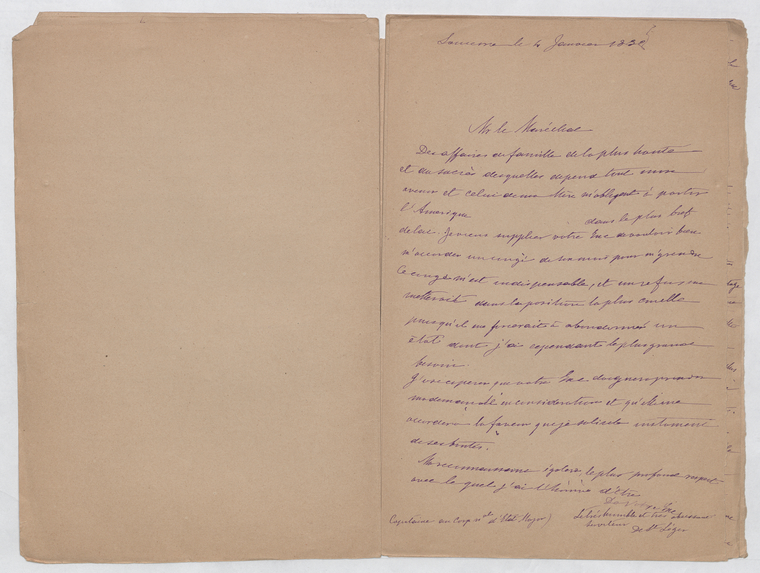 le 4 Janvier
Mr le Maréchal
Des affaires de famille de la plus haute
et du succès desquelles dépend tout mon
avenir et celui de ma Mère m'obligent à partir
l'Amérique dans le plus bref
délai. Je viens supplier votre Exc de vouloir bien
m'accorder un congé de pour m'y rendre
Ce congé m'est indispensable, et un refus me
mettrait dans la position la plus cruelle
puisqu'il me forcerait à abandonner un
état dont j'ai cependant le plus grand
besoin.
J'ose esperer que votre Exc daignera prendre
ma demande en considération et qu'elle me
accordera la faveur que je sollicite
de ses bontés.
Ma reconnaissance égalera le plus profond respect
avec lequel j'ai l'honneur d'être
De votre Exc
Le très humble et très obéissant
serviteur
De St Léger
Capitaine au Corps d'Etat Major)